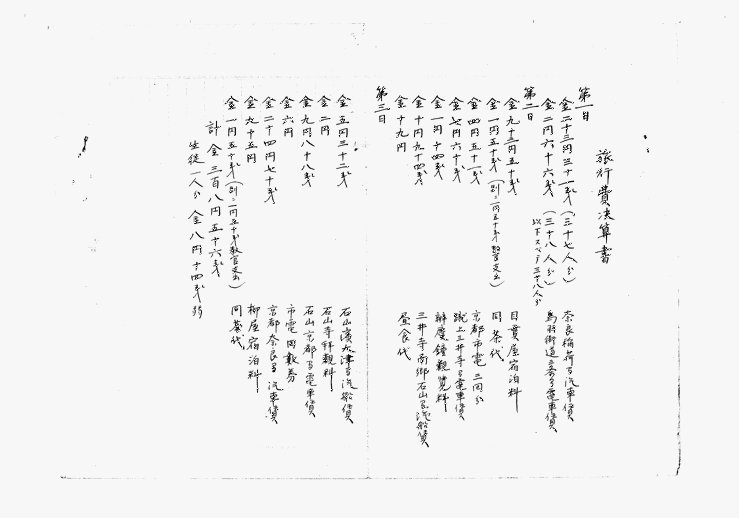 旅行費決算書
第一日
金二十三円三十一銭(三十七人分) 奈良稲荷間汽車賃
金二円六十六銭(三十八人分)以下スベテ三十八人分 鳥羽街道三条間電車賃
第二日
金九十三円五十銭 日貫屋宿泊料
金一円五十銭(別ニ一円五十銭教官支出) 同茶代
金四円五十一銭 京都市電三回分
金七円六十銭 蹴上三井寺間電車賃
金一円十四銭 辨慶鐘観覧料
金十円九十四銭 三井寺南郷石山間汽船賃
金十九円 昼食代
第三日
金五円三十二銭 石山濱大津間汽船賃
金二円 石山寺拝観料
金九円八十八銭 石山京都間電車賃
金六円 市電回数券
金二十四円七十銭 京都奈良間汽車賃
金九十五円 柳屋宿泊料
金一円五十銭(別ニ一円五十銭教官支出) 同茶代
計金三百八円五十六銭
生徒一人分金八円十四銭弱